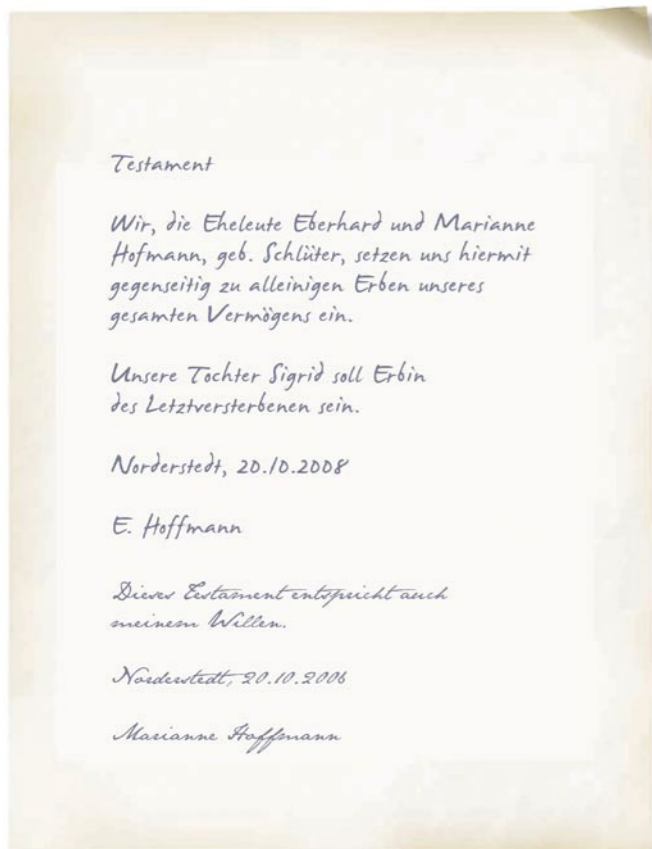 Testament
Wir, die Eheleute Eberhard und Marianne
Hofmann, geb. Schlüter, setzen uns hiermit
gegenseitig zu alleinigen Erben unseres
gesamten Vermögens ein.
Unsere Tochter Sigrid soll Erbin
des Letztversterbenen sein.
Norderstedt, 20.10.2008
E. Hoffmann
Dieses Testament entspricht auch
meinem Willen.
Norderstedt, 20.10.2006
Marianne Hoffmann